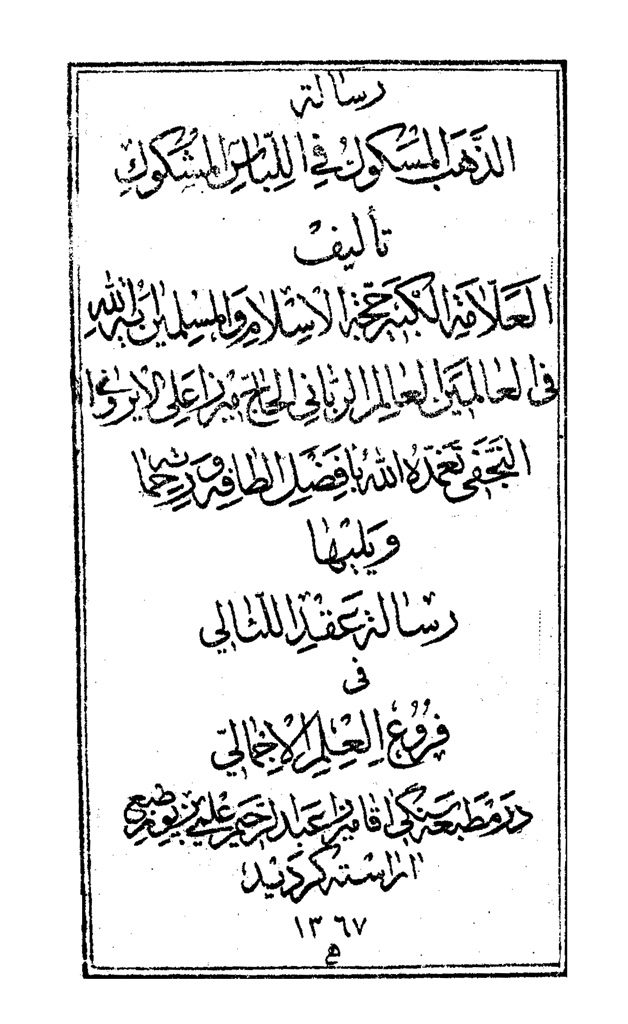 رسالة
الذَّهَبِ المَسكوكِ فِي اللِّباسِ المَشكُوكِ
تأليف
العَلّامَةِ الكَبير حُجَّة الاسلامِ وَالمُسلِمينَ آيَةِ اللهِ
فی العالَمَينِ العالِمِ الرَّبانی الحاج ميرزا عَلي الايروانی
النَّجَفی تَغَمَّدَهُ اللهُ بِافضَلِ الطافِه وَ رَحِمَاتِه
وَ يَليها
رسالة عَقدِ اللئالي
فی
فُرُوعِ العِلمِ الاجمالي
در مطبعه سنگی اقا ميرزا عبد الرحيم علمی بزيور طبع
اراسته گرديد
١٣٦٧
ه